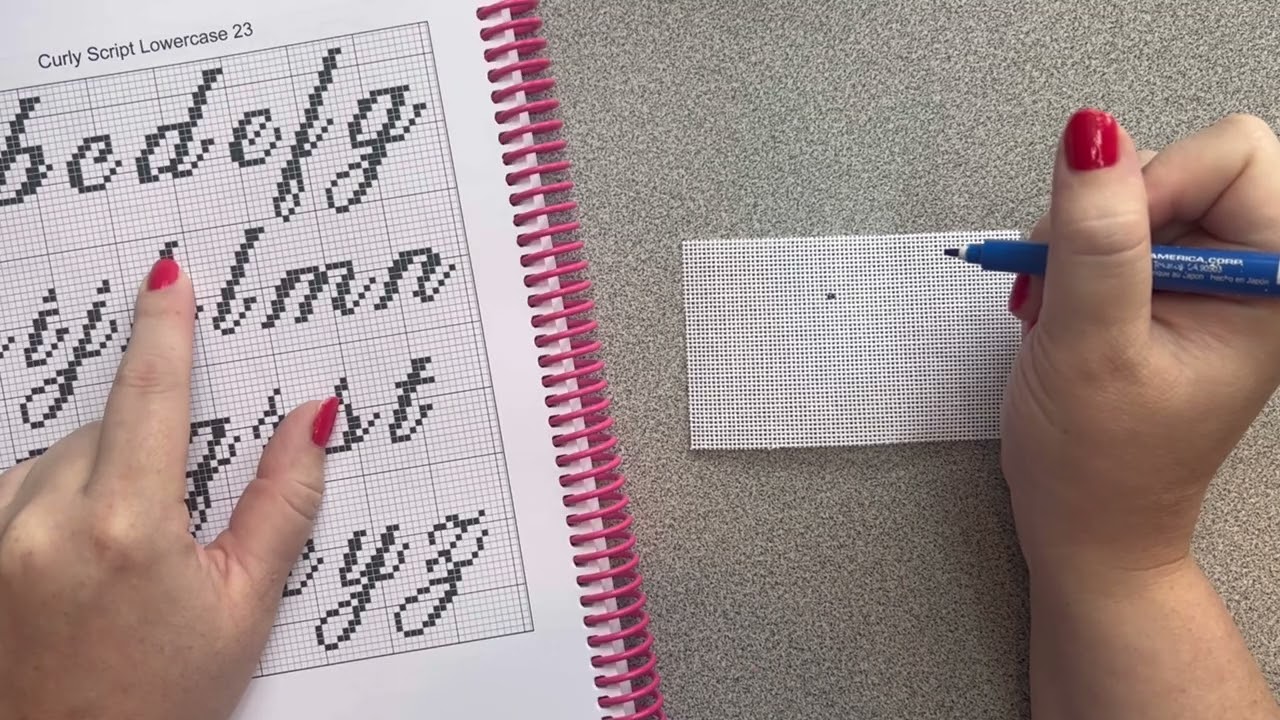 Curly Script Lowercase 23
b c d e f g
i j l m n
s t
y z
AMERICA CORP.
Hecho en Japón